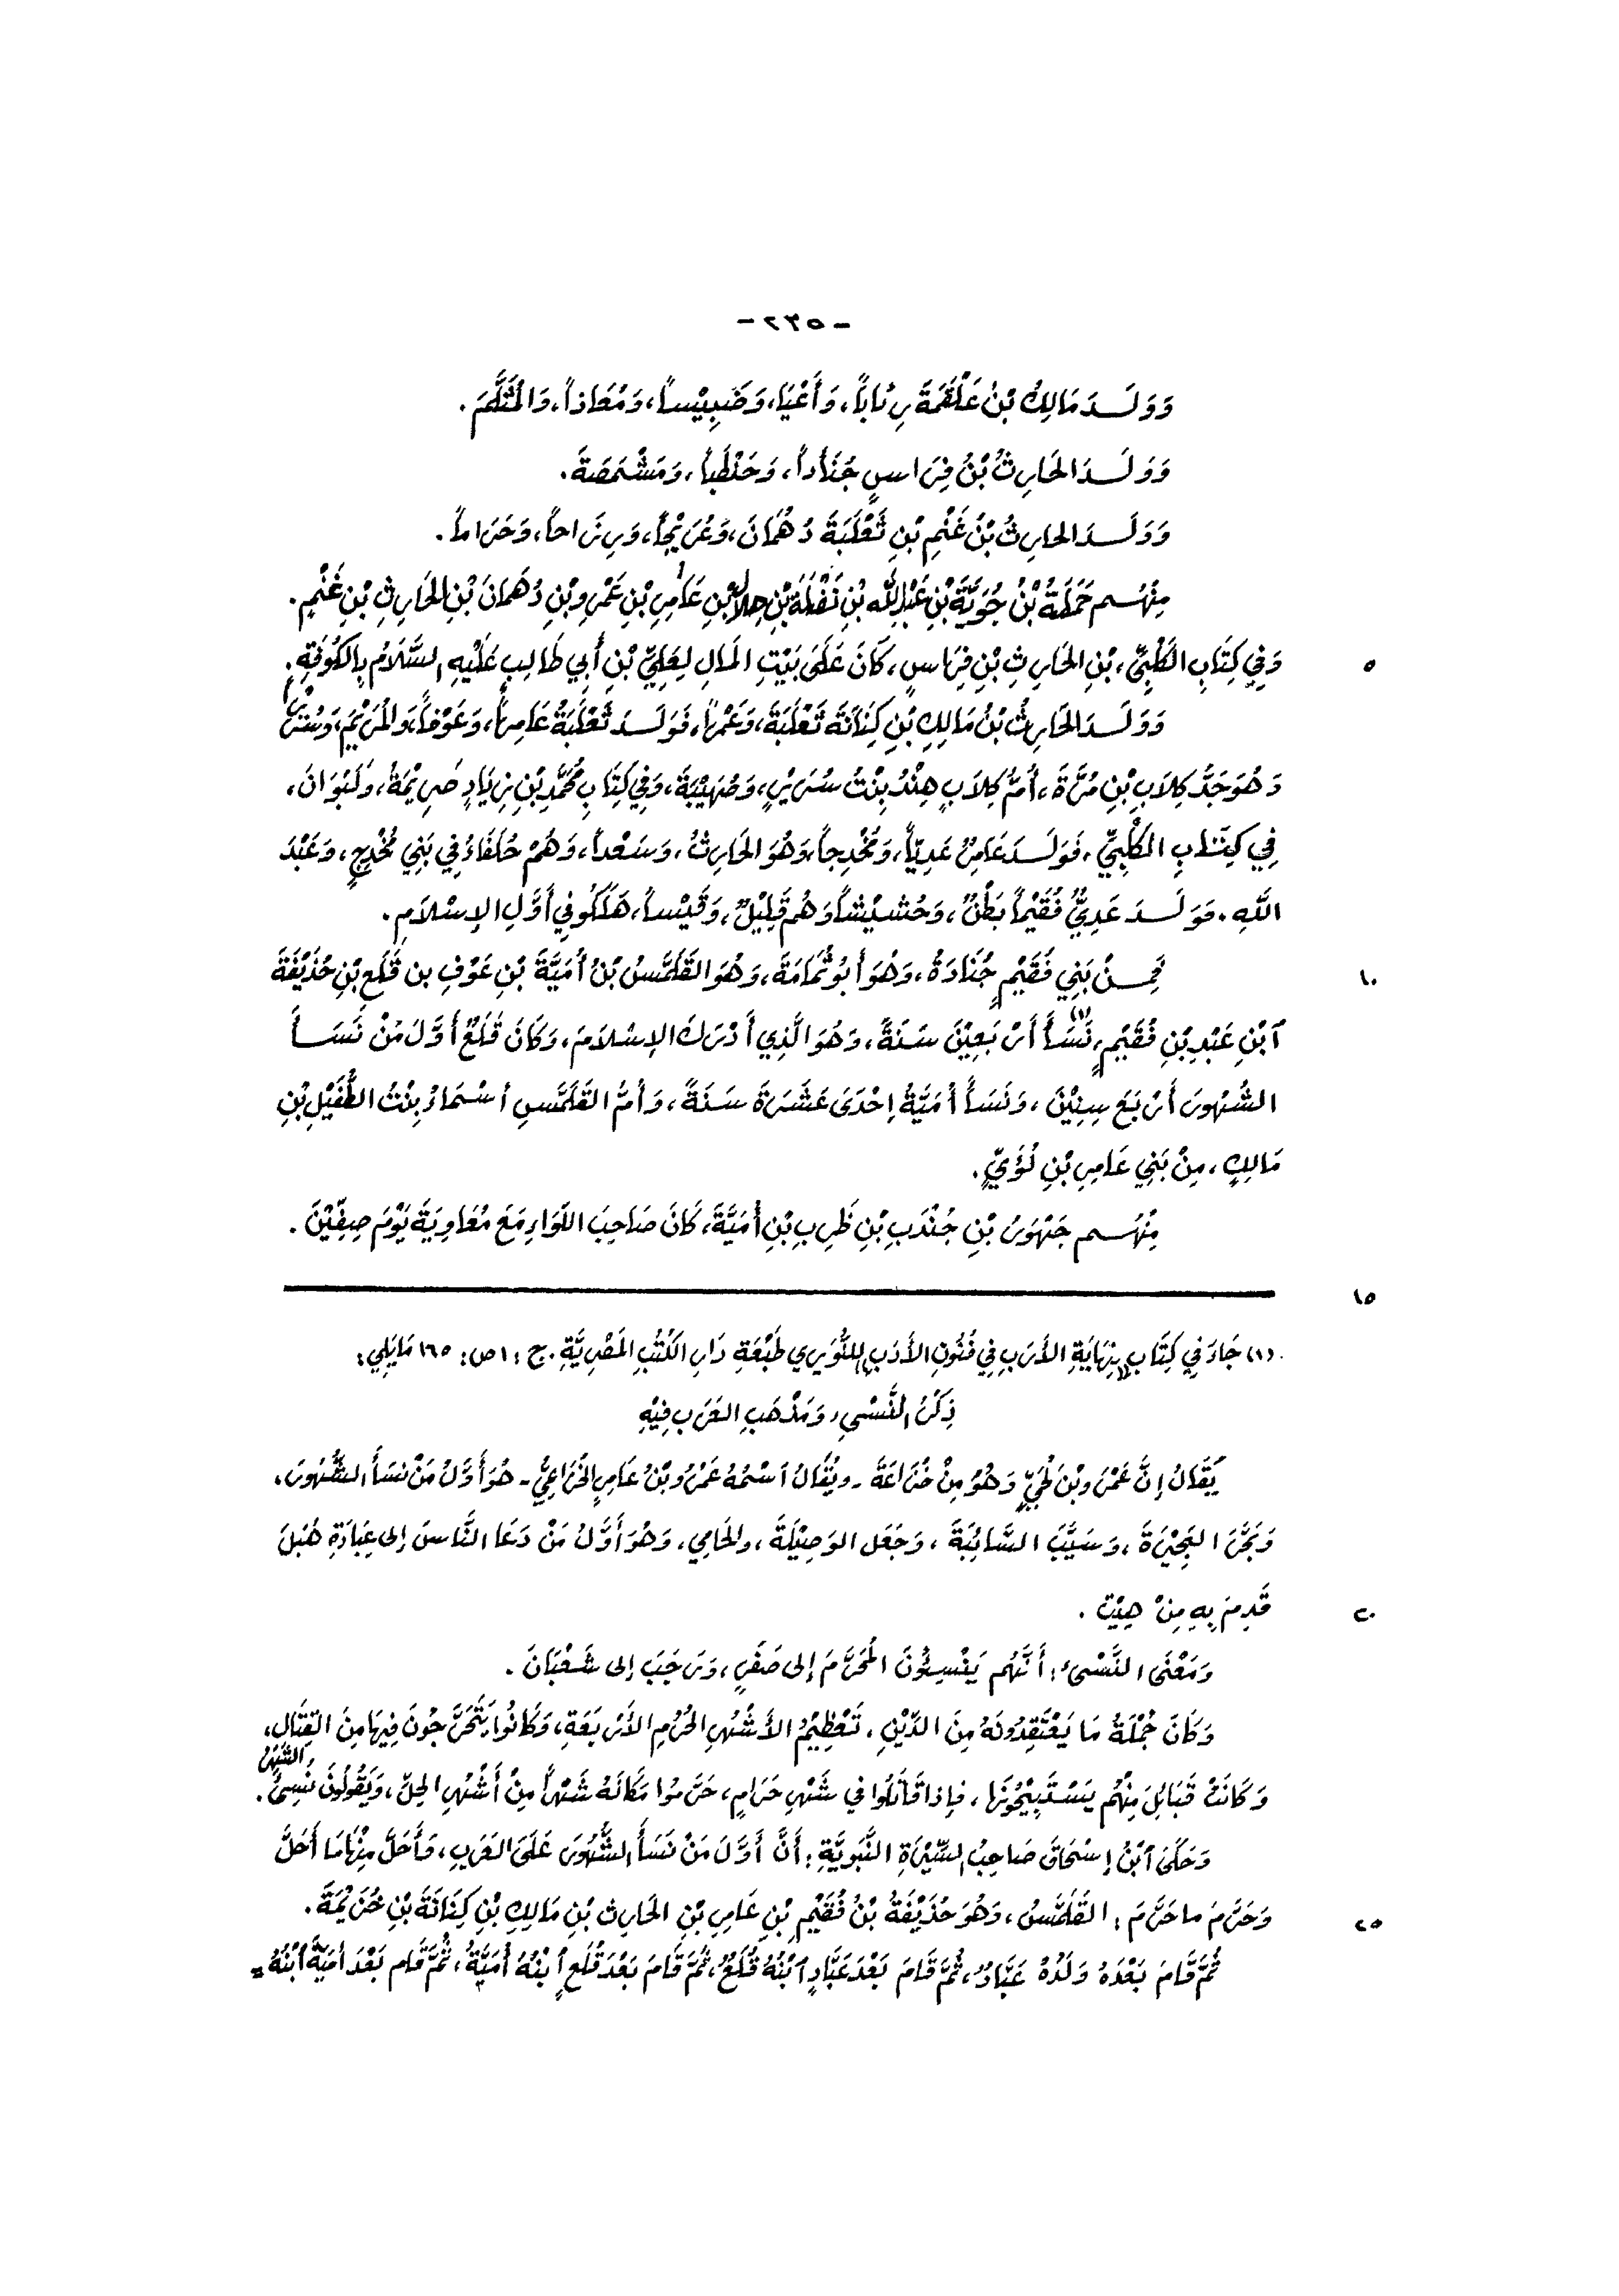 - ٢٣٥ -
وَوَلَدَ مَالِكُ بْنُ عَلْقَمَةَ رِئَابًا، وَأَعْيَا، وَضَبِيْساً، وَمُعَاذاً، وَالمُثَلَّمَ.
وَوَلَدَ الحَارِثُ بْنُ فِرَاسٍ جُنَادًا، وَحَنْطَباً، وَمَشْمَصَةَ.
وَوَلَدَ الحَارِثُ بْنُ غَنْمِ بْنِ ثَعْلَبَةَ دُهْمَانَ، وَعُرَيْجاً، وَرِزَاحاً، وَحَرَاماً.
مِنْهُم حَمَلَةُ بْنُ جُوَيَّةَ بْنِ عَبْدِ اللَّه بْنِ نَضْلَةَ بْنِ هِلالِ بْنِ عَامِرِ بْنِ عَمْرِو بْنِ دُهْمَانَ بْنِ الحَارِثِ بْنِ غَنْمٍ.
٥ وَفِي كِتَابِ الكَلْبِيِّ، بْنِ الحَارِثِ بْنِ فِرَاسٍ، كَانَ عَلَى بَيْتِ المَالِ لِعَلِيِّ بْنِ أَبِي طَالِبٍ عَلَيْهِ السَّلَامُ بِالكُوفَةِ.
وَوَلَدَ الحَارِثُ بْنُ مَالِكِ بْنِ كِنَانَةَ ثَعْلَبَةَ، وَعَمْراً، فَوَلَدَ ثَعْلَبَةُ عَامِراً، وَعَوْفاً، وَالمُرَيْمَ، وَسُرَيْراً
وَهُوَ جَدُّ كِلَابِ بْنِ مُرَّةَ، أُمُّ كِلَابٍ هِنْدُ بِنْتُ سُرَيْرٍ، وَصُهَيْبَةَ، وَفِي كِتَابِ مُحَمَّدِ بْنِ زِيَادٍ صَرِيْمَةُ، وَلَبْوَانَ،
فِي كِتَابِ الكَلْبِيِّ، فَوَلَدَ عَامِرٌ عَدِيّاً، وَمُخْدِجاً، وَهُوَ الحَارِثُ، وَسَعْداً، وَهُمْ حُلَفَاءُ فِي بَنِي مُخْدِجٍ، وَعَبْدَ
اللَّهِ. فَوَلَدَ عَدِيٌّ فُقَيْماً بَطْنٌ، وَحُشَيْشاً وَهُم قَلِيْلٌ، وَقَيْساً، هَلَكُو فِي أَوَّلِ الإِسْلَامِ.
١٠ فَمِنْ بَنِي فُقَيْمٍ جُنَادَةُ، وَهُوَ أَبُو ثُمَامَةَ، وَهُوَ القَلَمَّسُ بْنُ أُمَيَّةَ بْنِ عَوْفِ بنِ قَلَعِ بْنِ حُذَيْفَةَ
ٱبْنِ عَبْدِ بْنِ فُقَيْمٍ، نَسَأَ(١) أَرْبَعِيْنَ سَنَةً، وَهُوَ الَّذِي أَدْرَكَ الإِسْلَامَ، وَكَانَ قَلَعٌ أَوَّلَ مَنْ نَسَأَ
الشُّهُورَ أَرْبَعَ سِنِيْنَ، وَنَسَأَ أُمَيَّةُ إِحْدَى عَشَرَةَ سَنَةً، وَأُمُّ القَلَمَّسِ أَسْمَاءُ بِنْتُ الطُّفَيْلِ بْنِ
مَالِكٍ، مِنْ بَنِي عَامِرِ بْنِ لُؤَيٍّ.
مِنْهُم جَهْوَرُ بْنِ جُنْدَبِ بْنِ ظَرِبِ بْنِ أُمَيَّةَ، كَانَ صَاحِبَ اللِّوَاءِ مَعَ مُعَاوِيَةَ يَوْمَ صِفِّيْنَ.
١٥
(١) جَاءَ فِي كِتَابِ «نِهَايَةِ الأَرَبِ فِي فُنُونِ الأَدَبِ» لِلنُّوَيْرِي طَبْعَةِ دَارِ الكُتُبِ المَصْرِيَّةِ. ج: ١ ص: ١٦٥ مَا يَلِي:
ذِكْرُ النَّسْيءِ وَمَذْهَبِ العَرَبِ فِيْهِ
يُقَالُ إِنَّ عَمْرَو بْنَ لُحَيٍّ وَهُوَ مِنْ خُزَاعَةَ - ويُقَالُ ٱسْمُهُ عَمْرُو بْنُ عَامِرٍ الخُزَاعِيُّ - هُوَ أَوَّلُ مَنْ نَسَأَ الشُّهُورَ،
وَبَحَّرَ البَحِيْرَةَ، وَسَيَّبَ السَّائِبَةَ، وَجَعَلَ الوَصِيْلَةَ، والحَامِي، وَهُوَ أَوَّلُ مَنْ دَعَا النَّاسَ إلى عِبَادَةِ هُبَلَ
٢٠ قَدِمَ بِهِ مِنْ هِيْتَ.
وَمَعْنَى النَّسْيءُ: أَنَّهُم يَنْسِئُونَ المُحَرَّمَ إلى صَفَرٍ، وَرَجَبَ إلى شَعْبَانَ.
وَكَانَ جُمْلَةُ مَا يَعْتَقِدُونَهُ مِنَ الدِّيْنِ، تَعْظِيْمُ الأَشْهُرِ الحُرُمِ الأَرْبَعَةِ، وَكَانُوا يَتَحَرَّجُونَ فِيهَا مِنَ القِتَالِ،
وَكَانَتْ قَبَائِلُ مِنْهُم يَسْتَبِيْحُونَهَا، فإذا قَاتَلُوا في شَهْرٍ حَرَامٍ، حَرَّمُوا مَكَانَهُ شَهْراً مِنْ أَشْهُرِ الحِلِّ، وَيَقُولُونَ نُسِئَ الشَّهْرُ.
وَحَكَى ٱبْنُ إِسْحَاقَ صَاحِبُ السِّيْرَةِ النَّبَوِيَّةِ: أَنَّ أَوَّلَ مَنْ نَسَأَ الشُّهُورَ عَلَى العَرَبِ، فَأَحَلَّ مِنْهَا مَا أَحَلَّ
٢٥ وَحَرَّمَ ما حَرَّمَ: القَلَمَّسُ، وَهُوَ حُذَيْفَةُ بْنُ فُقَيْمِ بْنِ عَامِرِ بْنِ الحَارِثِ بْنِ مَالِكِ بْنِ كِنَانَةَ بْنِ خُزَيْمَةَ.
ثُمَّ قَامَ بَعْدَهُ وَلَدُهُ عَبَّادٌ، ثُمَّ قَامَ بَعْدَ عَبَّادٍ ٱبْنُهُ قَلَعٌ، ثُمَّ قَامَ بَعْدَ قَلَعٍ ٱبْنُهُ أُمَيَّةُ، ثُمَّ قَام بَعْدَ أُمَيَّةَ ٱبْنُهُ =